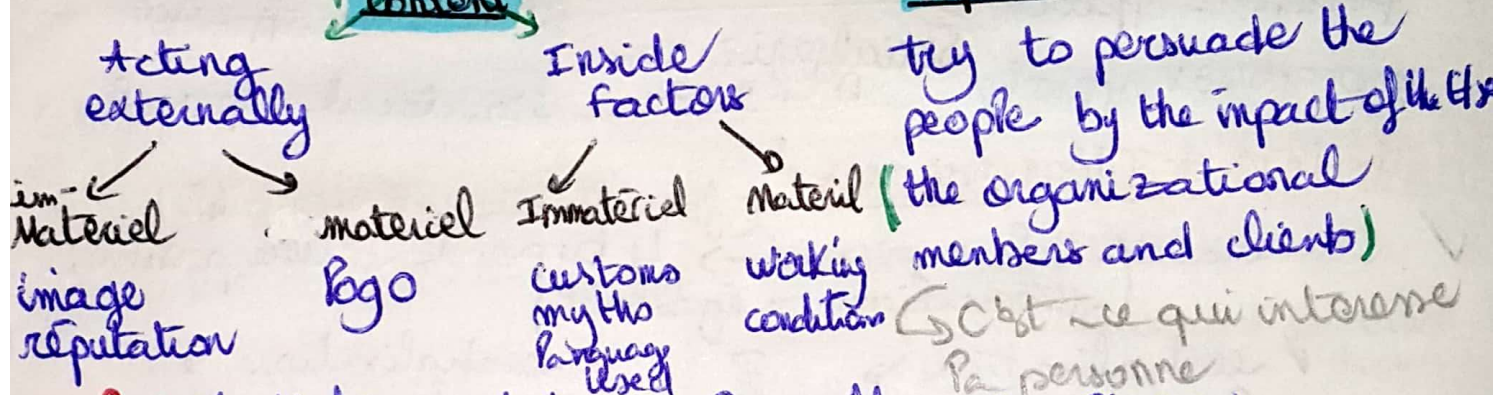 content
Acting
externally
im-
Matériel
image
réputation
materiel
logo
Inside
factors
Immatériel
customs
myths
language
used
Materil
working
condition
try to persuade the
people by the impact of the
(the organizational
members and clients)
c'est ce qui interesse
la personne